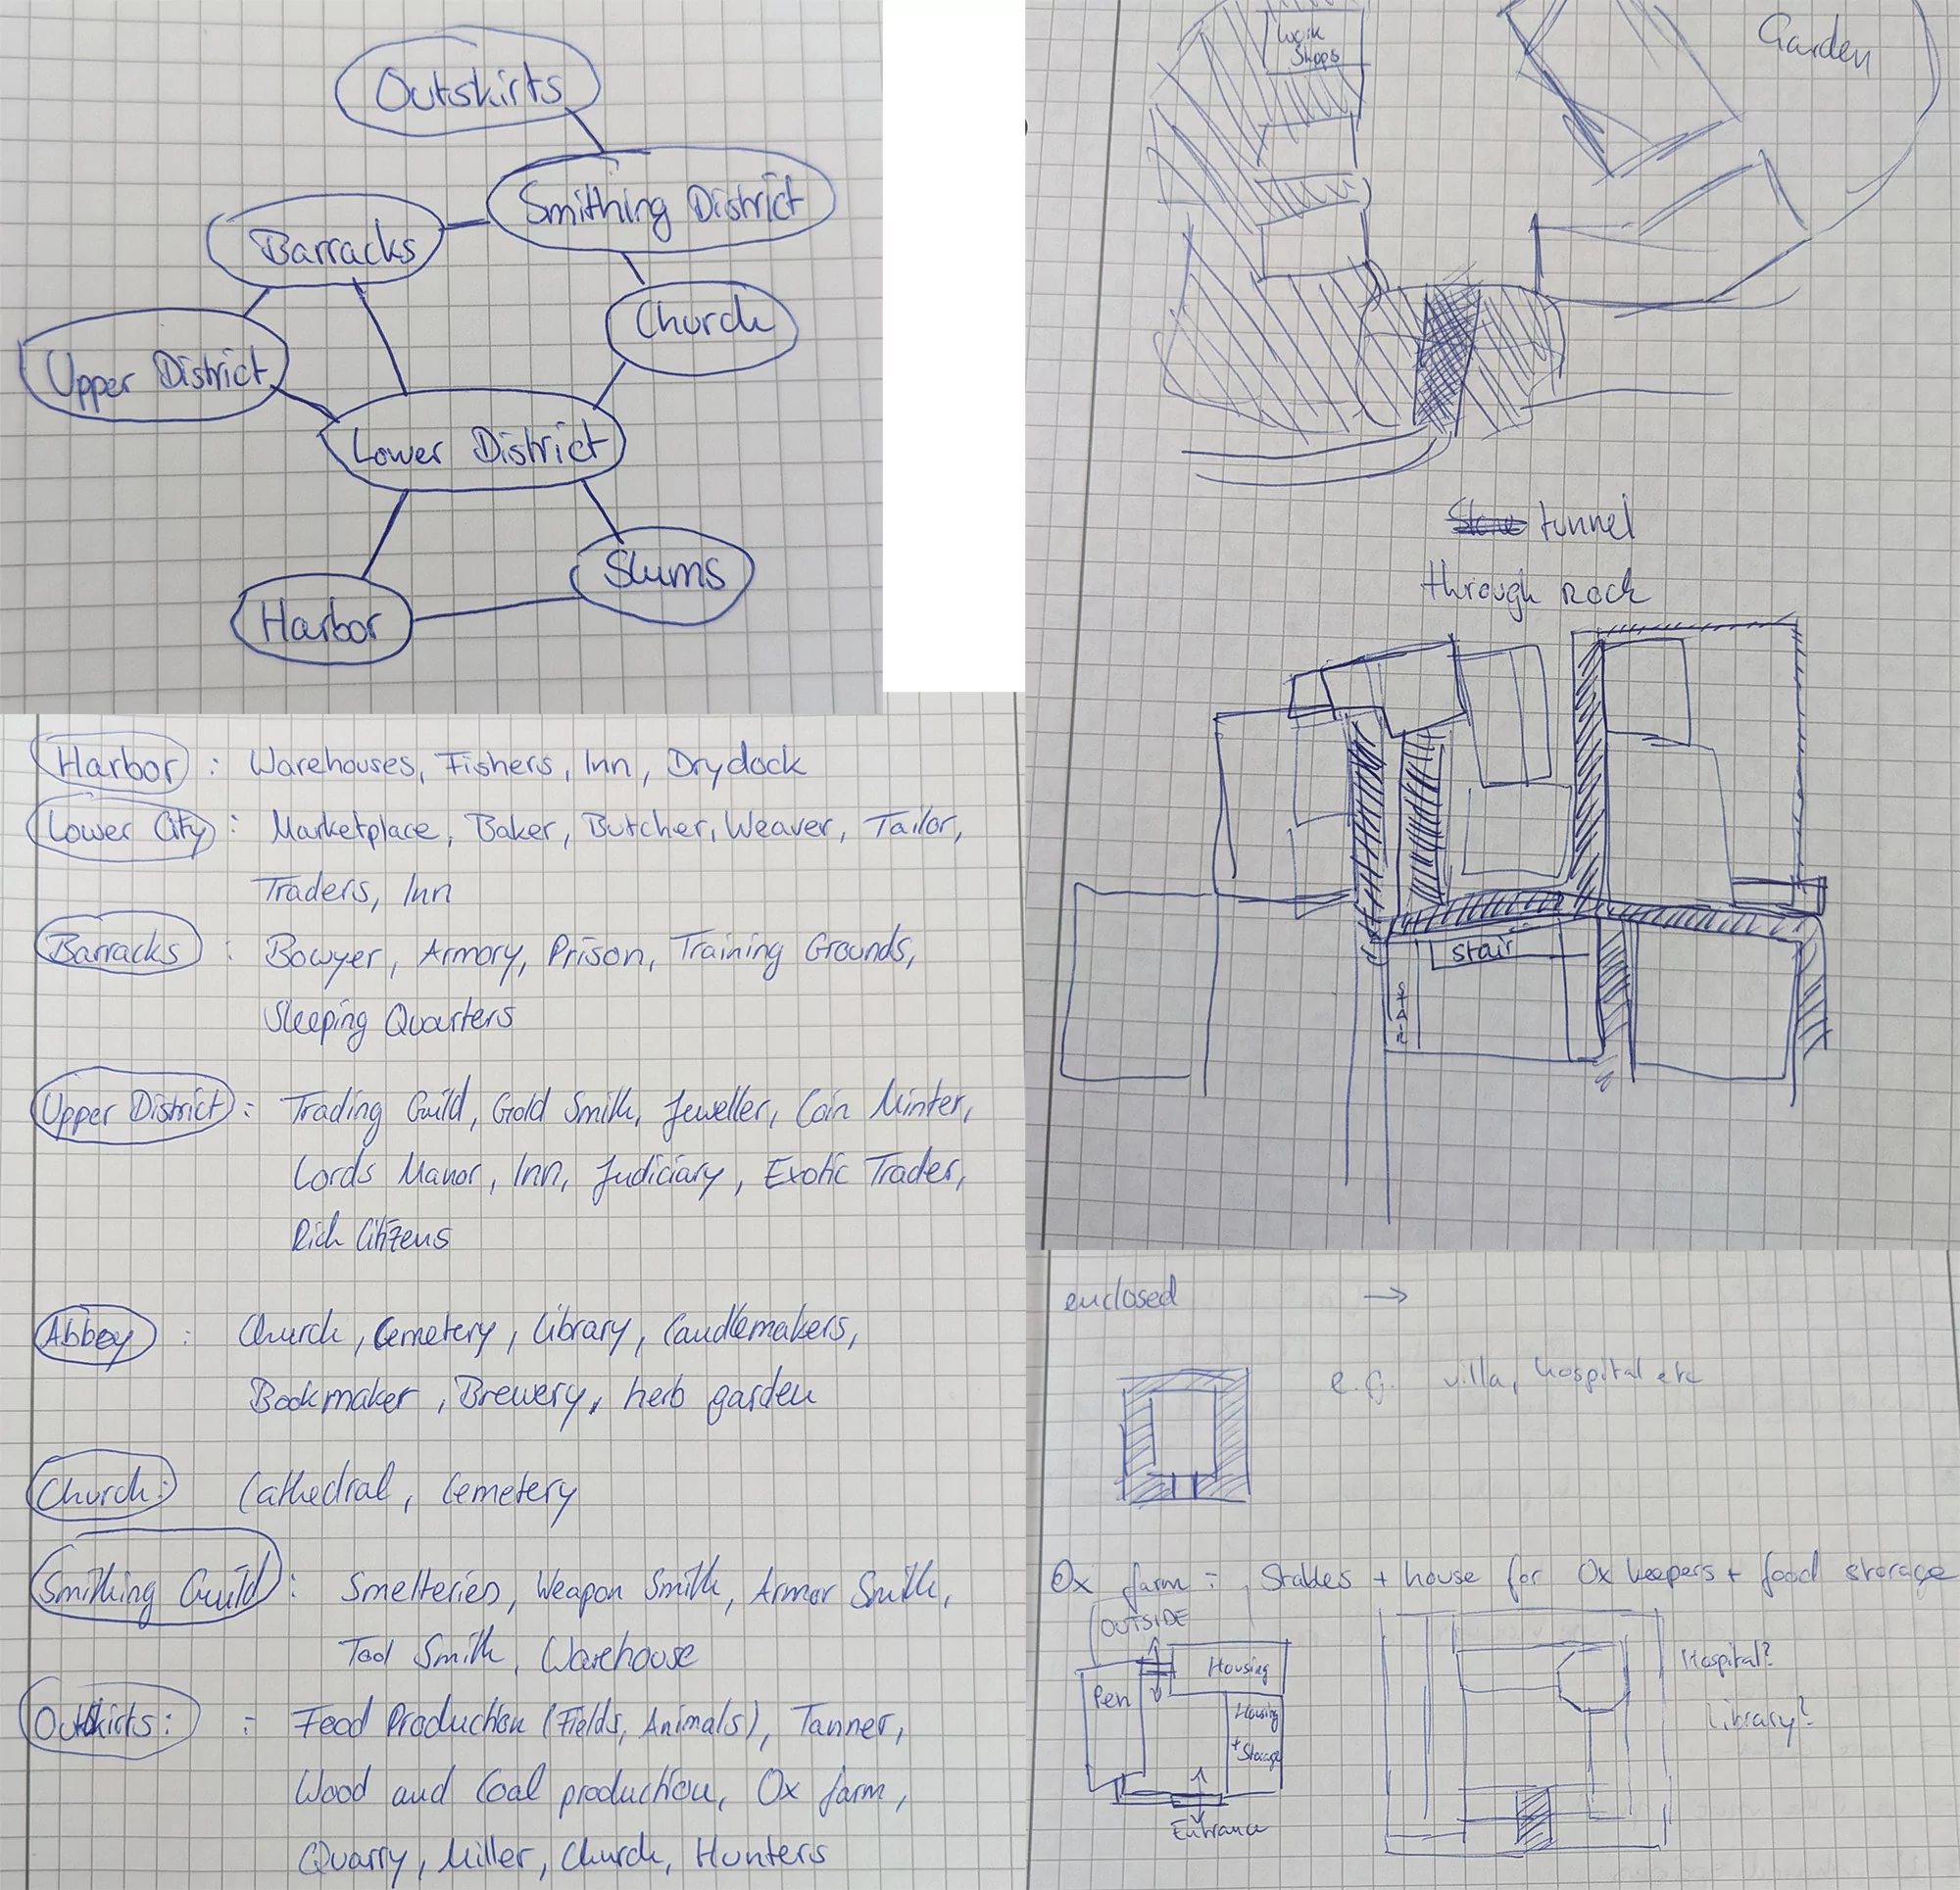 Outskirts
Smithing District
Barracks
Church
Upper District
Lower District
Slums
Harbor
Harbor : Warehouses, Fishers, Inn, Drydock
Lower City : Marketplace, Baker, Butcher, Weaver, Tailor,
Traders, Inn
Barracks : Bowyer, Armory, Prison, Training Grounds,
Sleeping Quarters
Upper District : Trading Guild, Gold Smith, Jeweller, Coin Minter,
Lords Manor, Inn, Judiciary, Exotic Trader,
Rich Citizens
Abbey : Church, Cemetery, Library, Candlemakers,
Bookmaker, Brewery, herb garden
Church : Cathedral, Cemetery
Smithing Guild : Smelteries, Weapon Smith, Armor Smith,
Tool Smith, Warehouse
Outskirts : : Food Production (Fields, Animals), Tanner,
Wood and Coal production, Ox farm,
Quarry, Miller, Church, Hunters
Work
Shops
Garden
tunnel
through Rock
stair
STAIR
enclosed →
e.g. villa, hospital etc
Ox farm : Stables + house for Ox keepers + food storage
OUTSIDE
Housing
Pen
Housing
+ Storage
Entrance
Hospital?
Library?